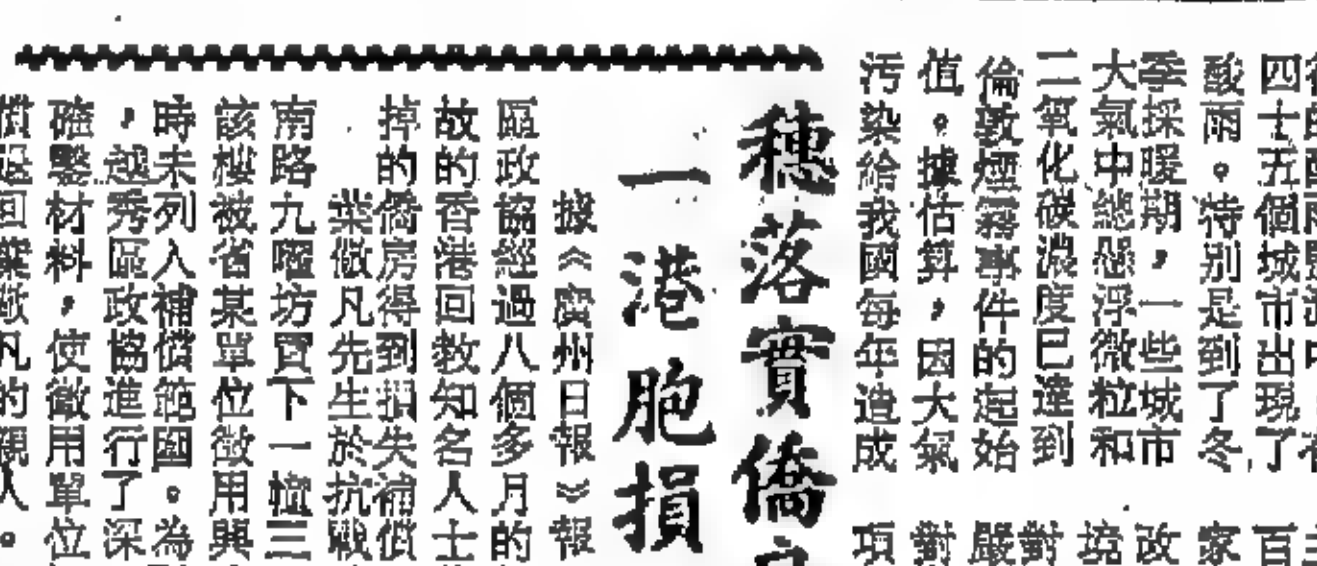 四士五個城市出現了
酸雨。特別是到了冬
季採暖期，一些城市
大氣中總懸浮微粒和
二氧化碳濃度已達到
倫敦煙霧事件的起始
值。據估算，因大氣
污染給我國每年造成
百
家
改
境
對
嚴
對
項
穗落實僑
一港胞損
據《廣州日報》報
區政協經過八個多月的
故的香港回教知名人士
掉的僑房得到損失補償
葉儆凡先生於抗戰
南路九曜坊買下一幢三
該樓被省某單位徵用興
時未列入補償範圍。為
，越秀區政協進行了深
確鑿材料，使徵用單位
償返回葉儆凡的親人。